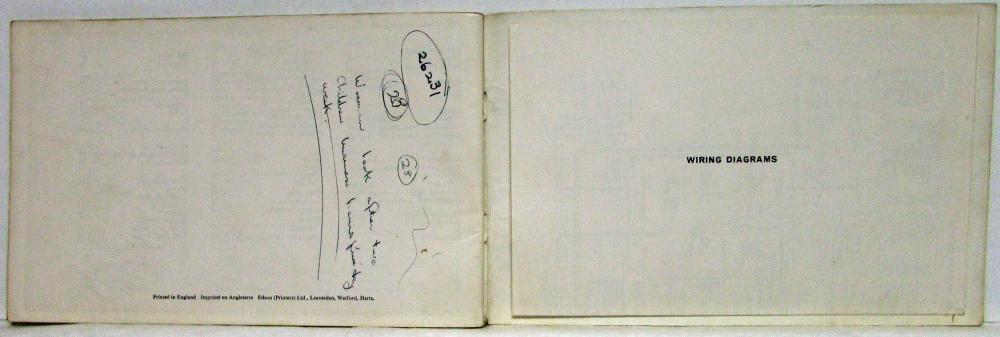 26231
28
28
Woman look after two
Children
week.
Printed in England Imprimé en Angleterre Edson (Printers) Ltd., Leavesden, Watford, Herts.
WIRING DIAGRAMS